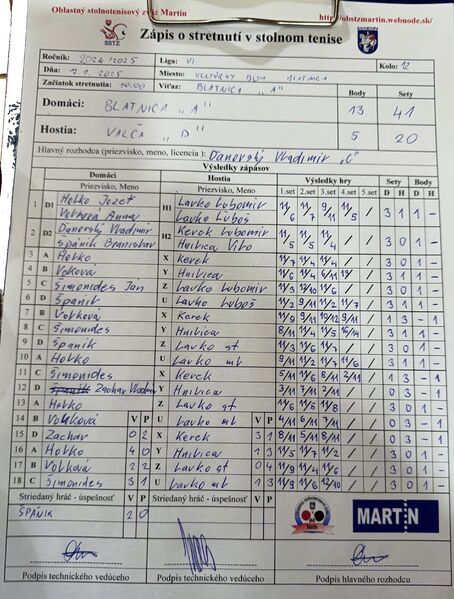 Oblastný stolnotenisový zväz Martin
http://obstzmartin.webnode.sk/
SSTZ
MARTIN
Zápis o stretnutí v stolnom tenise
Ročník: 2024/2025 Liga: VI Kolo: 12
Dňa: 12.1.2025 Miesto: KULTÚRNY DOM BLATNICA
Začiatok stretnutia: 10.00 Víťaz: BLATNICA "A" Body Sety
Domáci: BLATNICA "A" 13 41
Hostia: VALČA "D" 5 20
Hlavný rozhodca (priezvisko, meno, licencia): Ďanovský Vladimír "C"
Výsledky zápasov
Domáci Hostia Výsledky hry Sety Body
Priezvisko, Meno Priezvisko, Meno 1.set 2.set 3.set 4.set 5.set D H D H
1 D1 Holko Jozef H1 Lavko Ľubomír 3 1 1 -
Volková Anna Lavko Ľuboš
2 D2 Ďanovský Vladimír H2 Kerek Ľubomír 3 0 1 -
Špánik Branislav Hnilica Vito
3 A Holko X Kerek 11/7 11/4 11/4 / / 3 0 1 -
4 B Volková Y Hnilica 3 1 1 -
5 C Šimonides Ján Z Lavko Ľubomír 11/3 12/10 11/6 / / 3 0 1 -
6 D Špánik U Lavko Ľuboš 11/2 9/11 11/2 11/7 / 3 1 1 -
7 B Volková X Kerek 1 3 - 1
8 C Šimonides Y Hnilica 8/11 11/4 11/5 / 3 1 1 -
9 D Špánik Z Lavko st 11/4 11/5 11/7 / / 3 0 1 -
10 A Holko U Lavko ml 9/11 11/2 11/7 11/6 / 3 1 1 -
11 C Šimonides X Kerek 5/11 11/6 8/11 2/11 / 1 3 - 1
12 D Zachar Y Hnilica 3/11 7/11 / / 0 3 - 1
13 A Holko Z Lavko st 11/6 11/5 11/8 / / 3 0 1 -
14 B Volková V P U Lavko ml V P 4/11 6/11 / / 0 3 - 1
15 D Zachar 0 2 X Kerek 3 1 8/11 8/11 / / 0 3 - 1
16 A Holko 4 0 Y Hnilica 1 3 11/5 11/7 11/2 / / 3 0 1 -
17 B Volková 2 2 Z Lavko st 0 4 11/9 11/4 11/6 / / 3 0 1 -
18 C Šimonides 3 1 U Lavko ml 1 3 11/9 11/6 / / 3 0 1 -
Striedaný hráč - úspešnosť V P Striedaný hráč - úspešnosť V P
ŠPÁNIK 2 0
MARTIN
Podpis technického vedúceho Podpis technického vedúceho Podpis hlavného rozhodcu